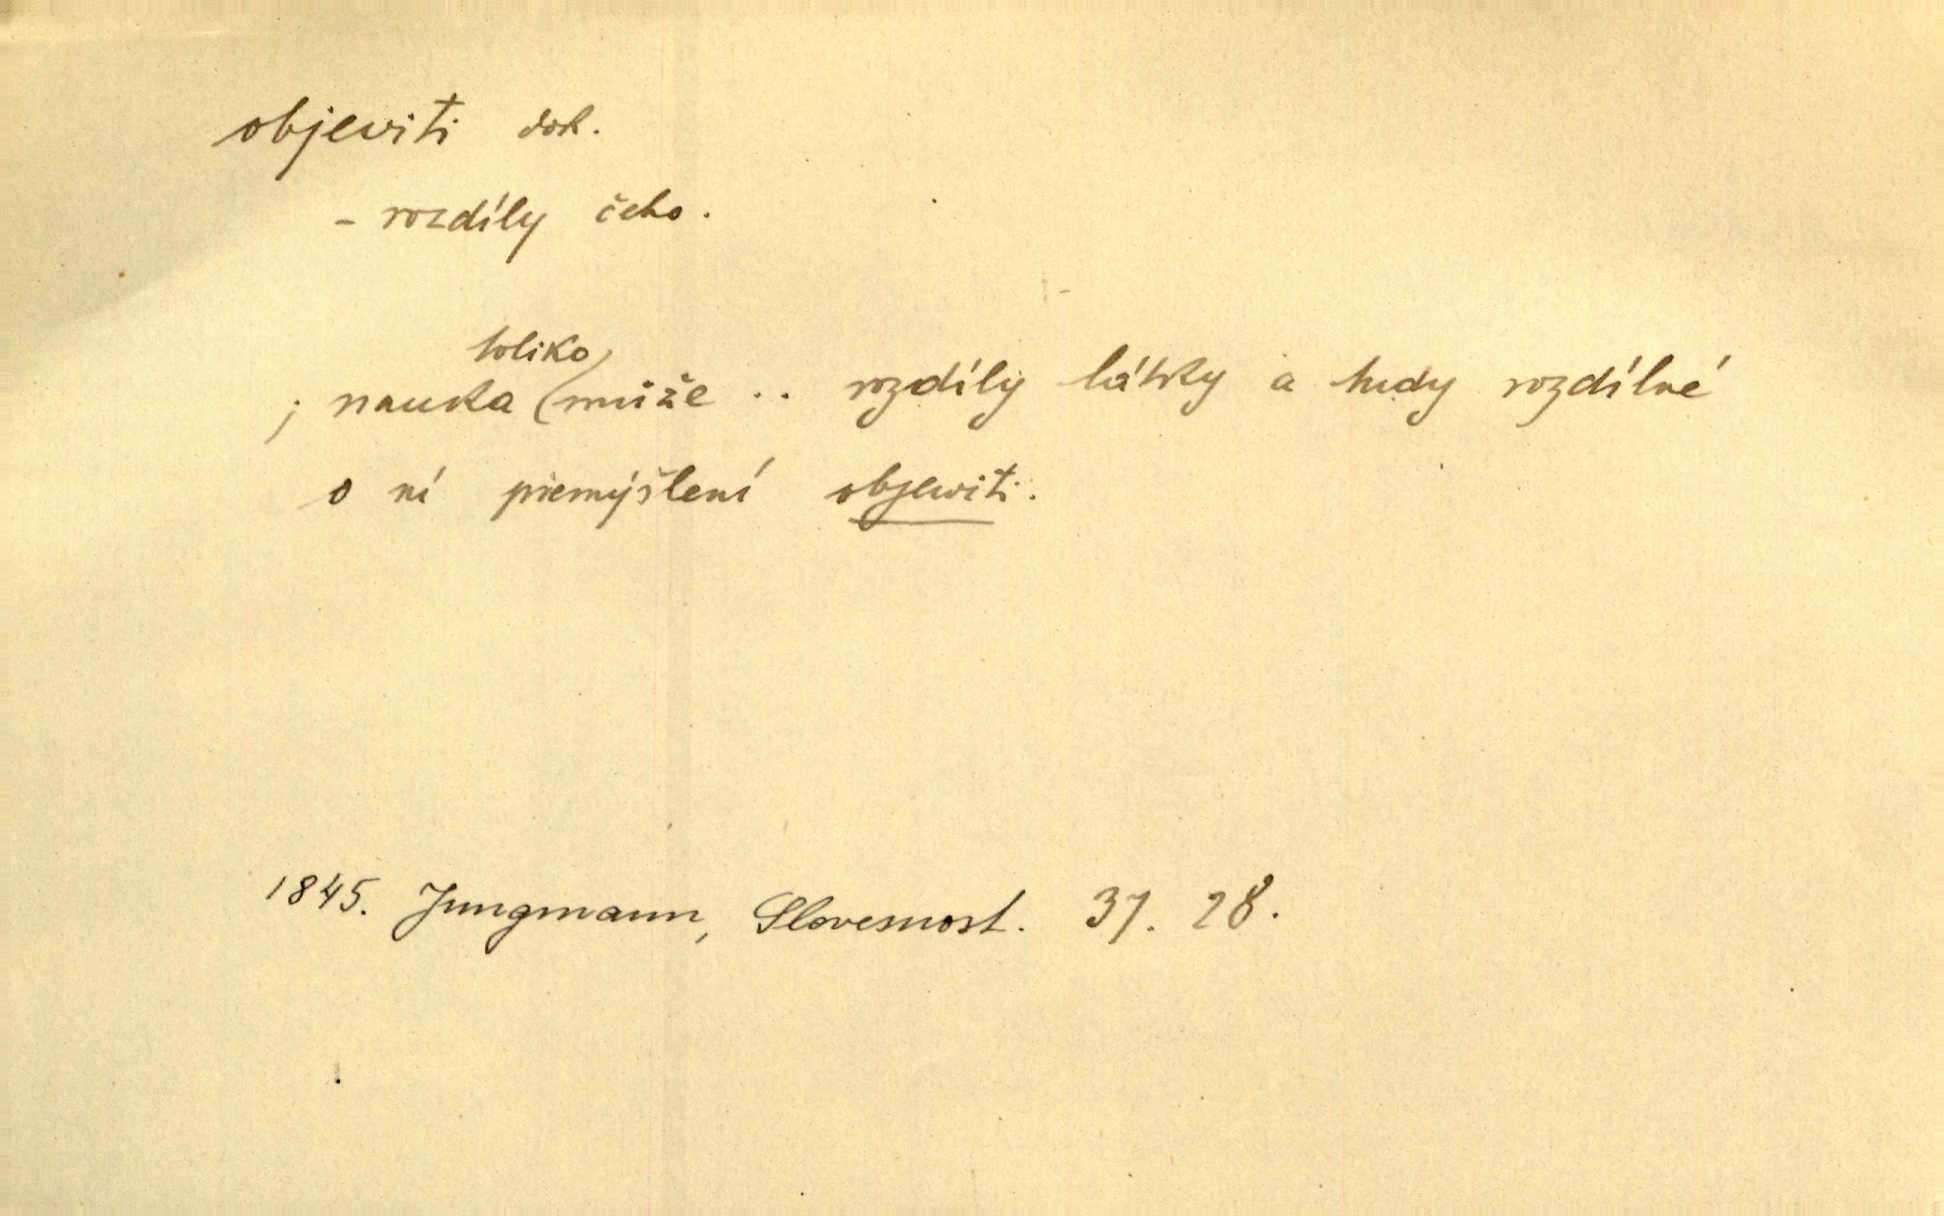 objeviti dok.
- rozdíly čeho.
toliko
; nauka může .. rozdíly látky a tudy rozdílné
o ní přemýšlení objewiti.
1845. Jungmann, Slovesnost. 37. 28.